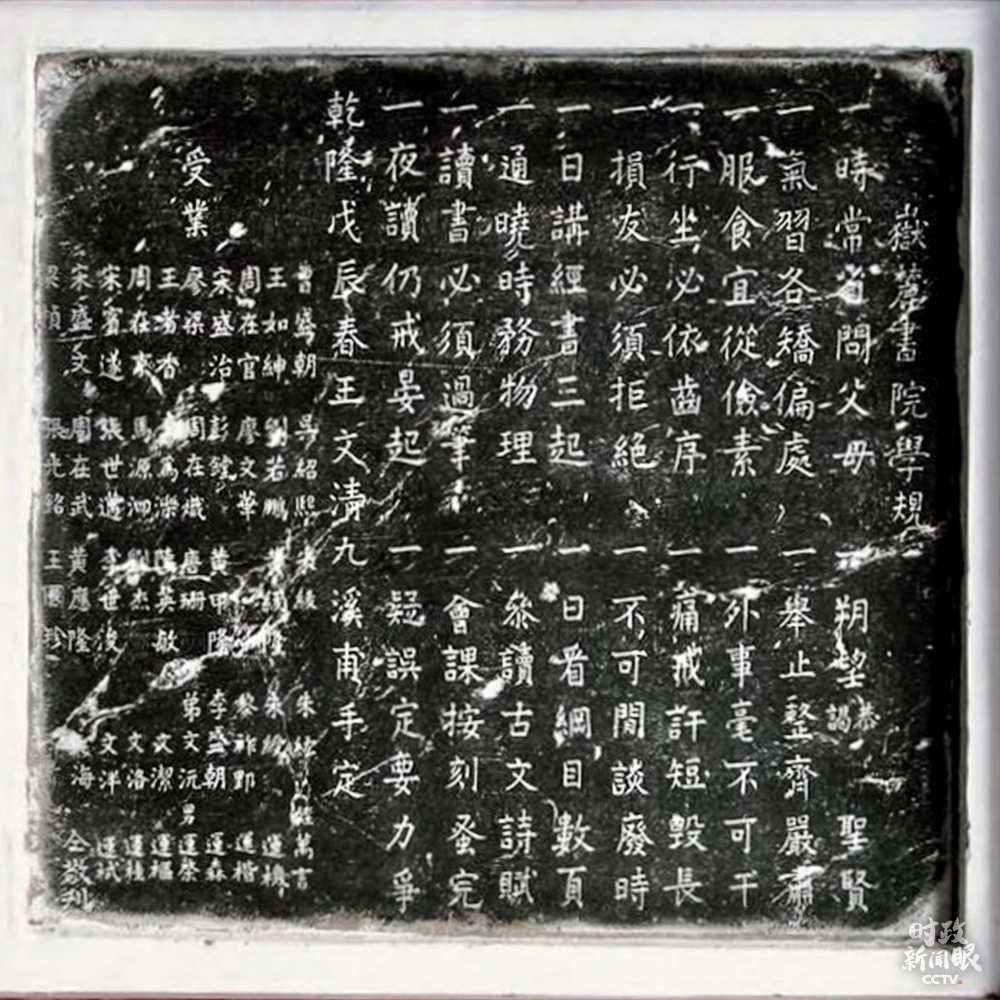 嶽麓書院學規
一時常省問父母 一朔望恭謁聖賢
一氣習各矯偏處 一舉止整齊嚴肅
一服食宜從儉素 一外事毫不可干
一行坐必依齒序 一痛戒訐短毀長
一損友必須拒絕 一不可閒談廢時
一日講經書三起 一日看綱目數頁
一通曉時務物理 一參讀古文詩賦
一讀書必須過筆 一會課按刻蚤完
一夜讀仍戒晏起 一疑誤定要力爭
乾隆戊辰春王文清九溪甫手定
受業
曾盛朝 吳紹熙 萬言
王如紳 劉若鵬
周在官 廖文華 黎祚郢 運楷
宋盛治 彭 黃甲隆 李盛朝 運森
廖梁 周在熾 唐珊 弟文沅 男運榮
王者香 陳英敏 文潔 運樞
周在 馬源泗 劉杰 文洛 運桂
宋賓遂 張世 李世 文洋 運
宋盛文 周在武 黃應隆 海 仝敬刊
梁 張先銘 王 珍
时政
新闻眼
CCTV.